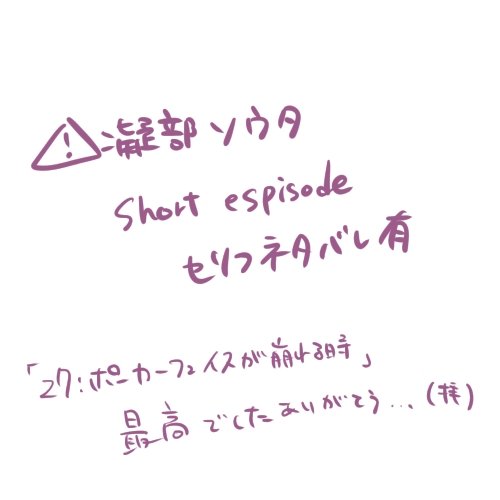 ⚠凝部ソウタ
short espisode
セリフネタバレ有
「27:ポーカーフェイスが崩れる時」
最高でしたありがとう…(拝)